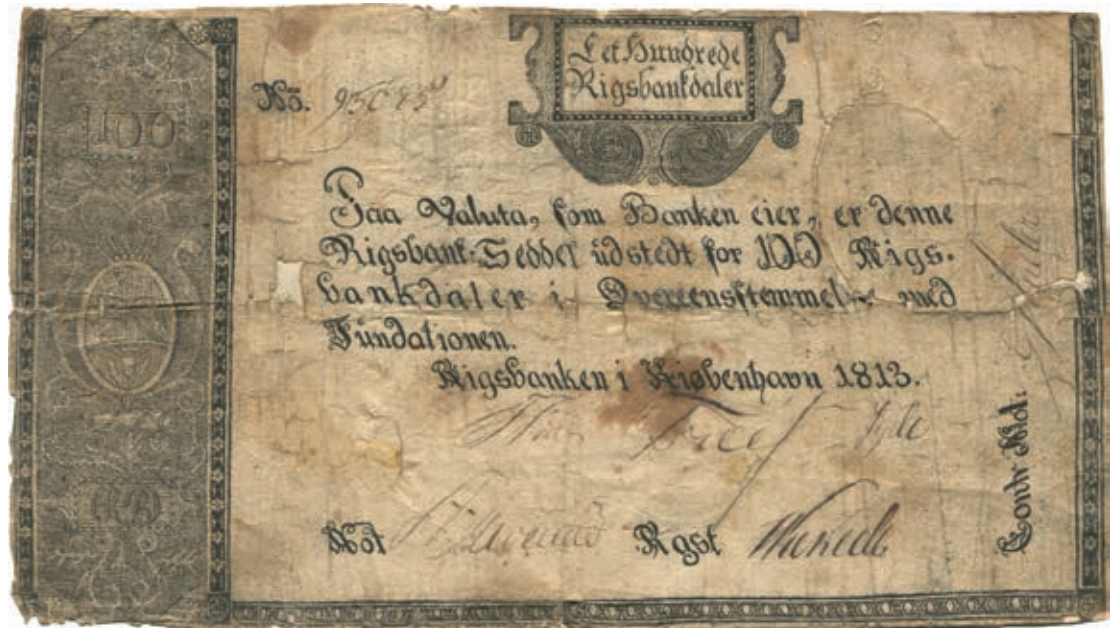 Eet Hundrede
Rigsbankdaler
100
No. 95085
Paa Valuta, som Banken eier, er denne
Rigsbank-Seddel üdstedt for 100 Rigs-
bankdaler i Overeensstemmelse med
Fündationen.
Rigsbanken i Kiøbenhavn 1813.
Not
Rgst
Contr Not: